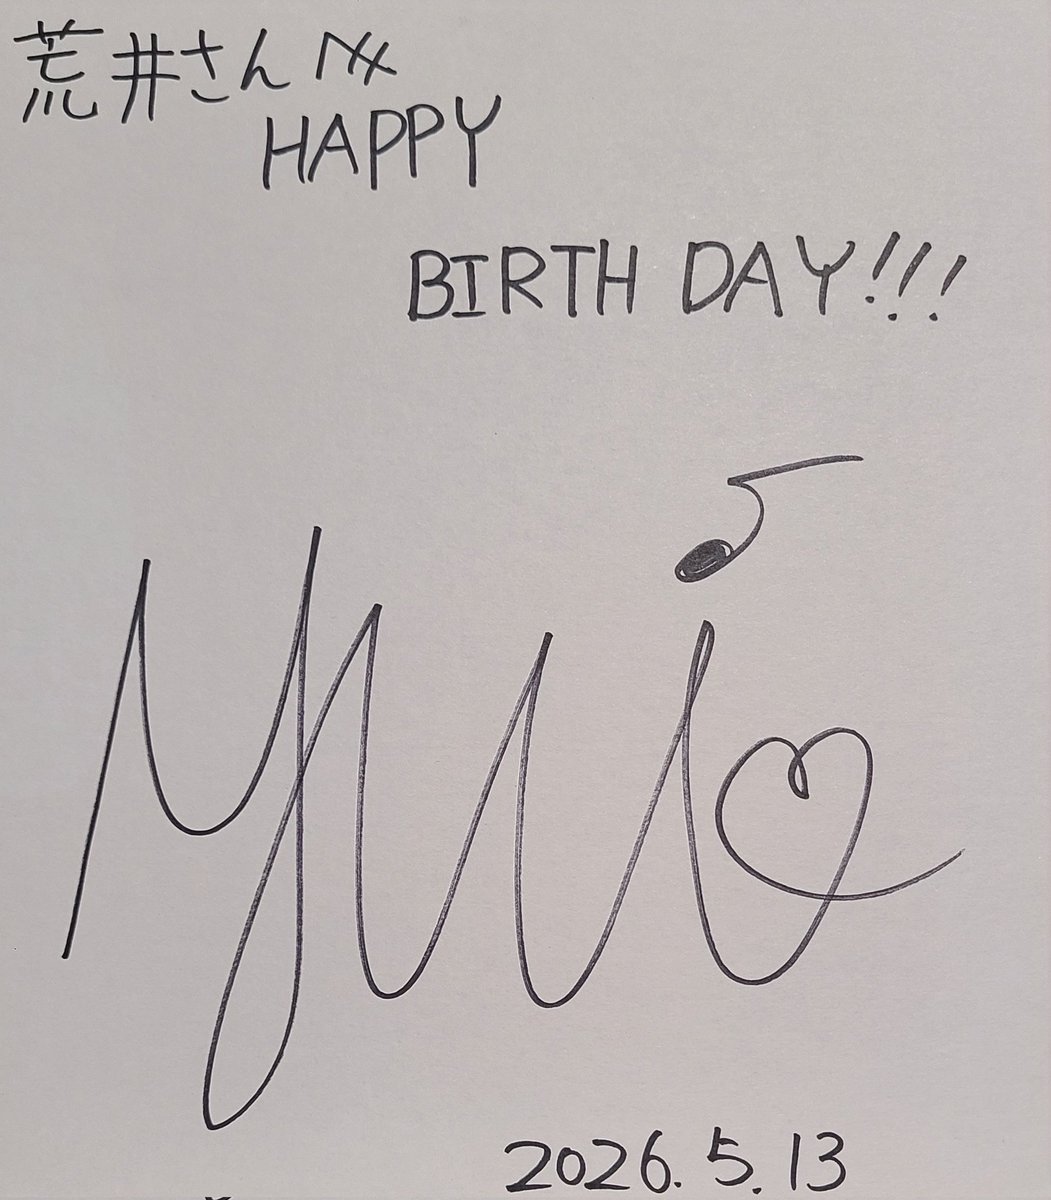 荒井さんへ
HAPPY
BIRTH DAY!!!
yui
2026.5.13